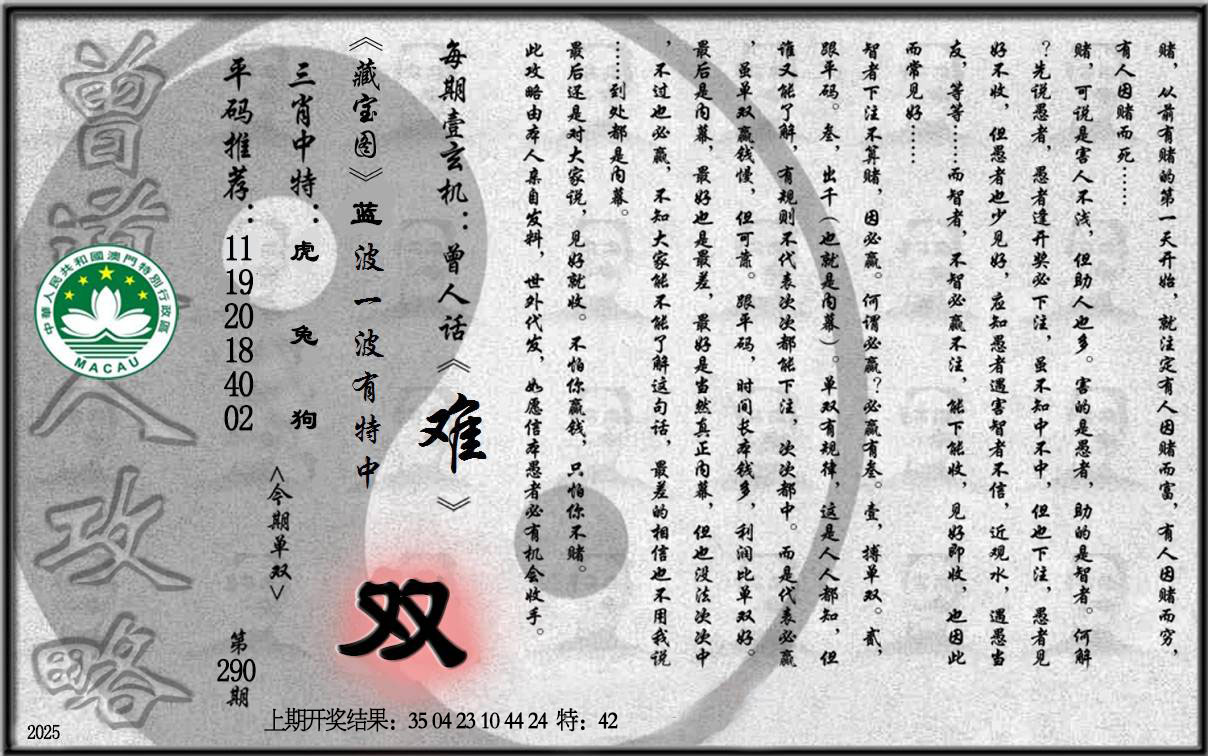 赌，从前有赌的第一天开始，就注定有人因赌而富，有人因赌而穷，
有人因赌而死……
赌，可说是害人不浅，但助人也多。害的是愚者，助的是智者。何解
？先说愚者，愚者逢开奖必下注，虽不知中不中，但也下注，愚者见
好不收，但愚者也少见好，应知愚者遇害智者不信，近观水，遇愚当
友，等等……而智者，不智必赢不注，能下能收，见好即收，也因此
而常见好……
智者下注不算赌，因必赢。何谓必赢？必赢有叁。壹，搏单双。贰，
跟平码。叁，出千（也就是内幕）。单双有规律，这是人人都知，但
谁又能了解，有规则不代表次次都能下注，次次都中。而是代表必赢
，虽单双赢钱慢，但可靠。跟平码，时间长本钱多，利润比单双好。
最后是内幕，最好也是最差，最好是当然真正内幕，但也没法次次中
，不过也必赢，不知大家能不能了解这句话，最差的相信也不用我说
……到处都是内幕。
最后还是对大家说，见好就收。不怕你赢钱，只怕你不赌。
此攻略由本人亲自发料，世外代发，如愿信本愚者必有机会收手。
每期壹玄机：曾人话《难》
《藏宝图》蓝波一波有特中
双
三肖中特：虎 兔 狗
<今期单双>
平码推荐：11 19 20 18 40 02
第290期
曾道人攻略
中華人民共和國澳門特別行政區
MACAU
上期开奖结果：35 04 23 10 44 24 特：42
2025